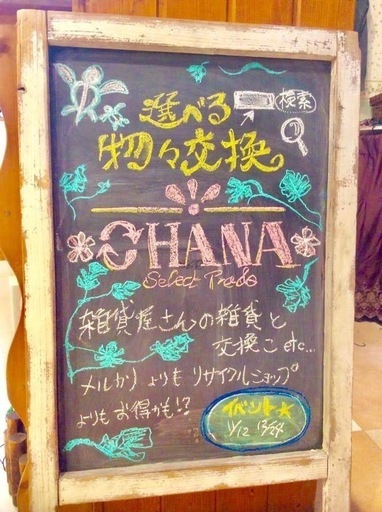 選べる
検索
物々交換
OHANA
Select Trade
雑貨屋さんの雑貨と
交換こ etc...
メルカリ よりも リサイクルショップ
よりも お得かも!?
イベント★
11/12 12/24